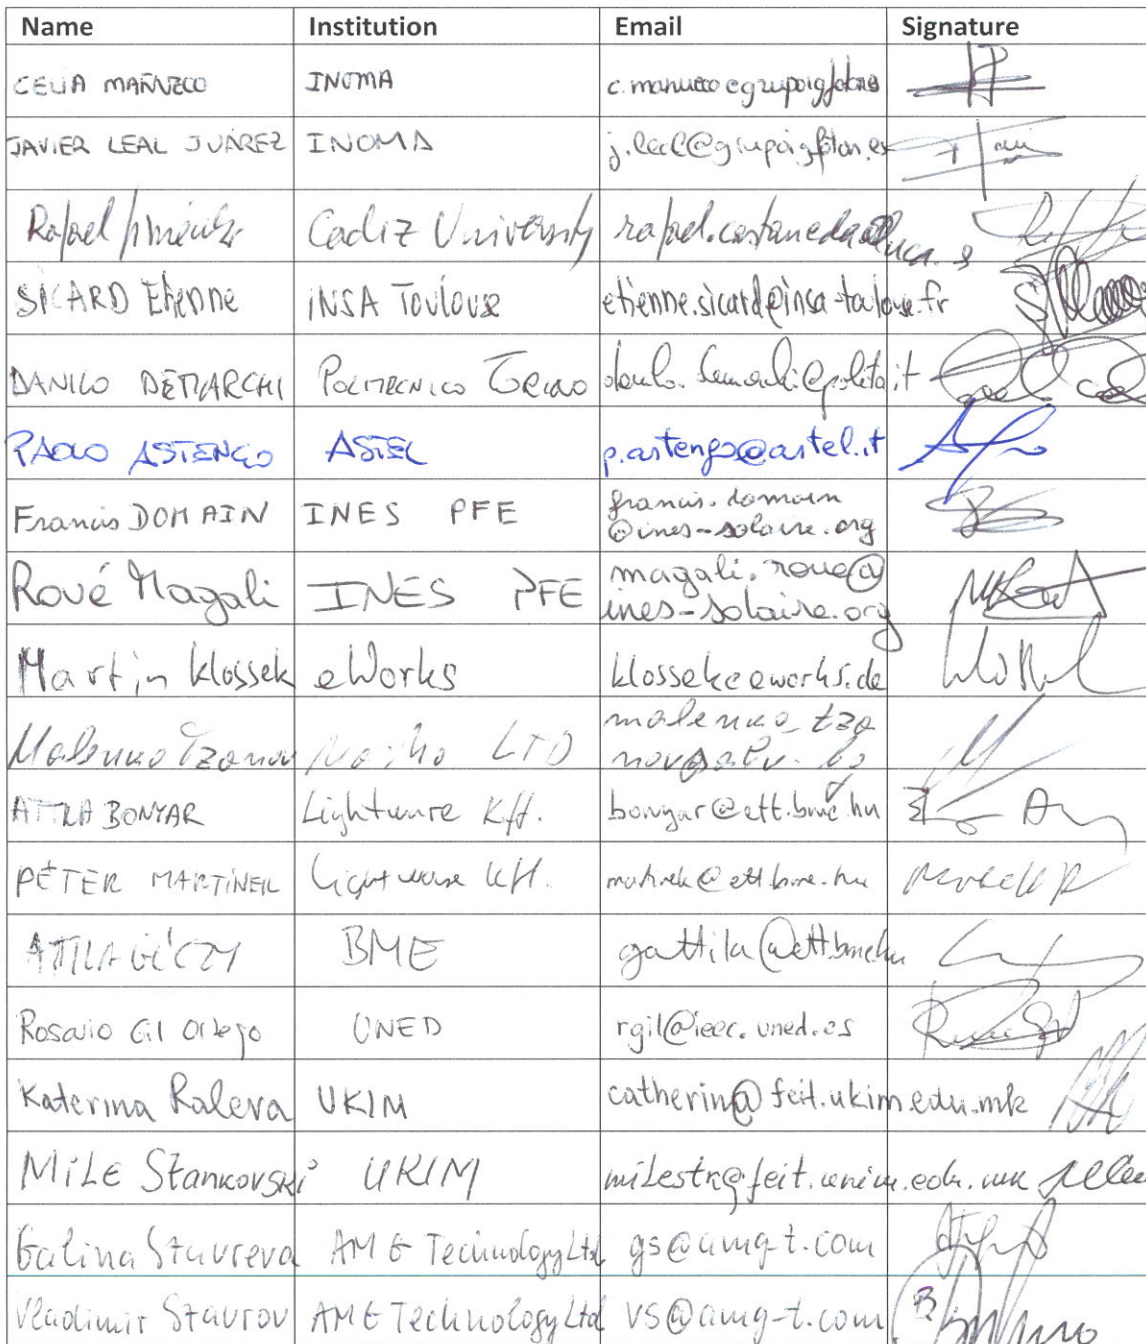 Name Institution Email Signature
CELIA MAÑUECO INOMA
JAVIER LEAL JUÁREZ INOMA j.leal@grupoigfoton.es
Rafael Jiménez Cadiz University rafael.castaneda@uca.es
SICARD Etienne INSA Toulouse etienne.sicard@insa-toulouse.fr
DANILO DEMARCHI POLITECNICO TORINO danilo.demarchi@polito.it
PAOLO ASTENGO ASTEL p.astengo@astel.it
Francis DOMAIN INES PFE francis.domain
@ines-solaire.org
Rové Magali INES PFE magali.roue@
ines-solaire.org
Martin Klossek eWorks klossek@eworks.de
Malenko Tzanov LTD malenko_tza
ATTILA BONYAR Lightware Kft. bonyar@ett.bme.hu
PÉTER MARTINEK Lightware Kft. martinek@ett.bme.hu
ATTILA GÉCZY BME gattila@ett.bme.hu
Rosario Gil Ortego UNED rgil@ieec.uned.es
Katerina Raleva UKIM catherin@feit.ukim.edu.mk
MILE Stankovski UKIM milestk@feit.ukim.edu.mk
Galina Stavreva AMG Technology Ltd gs@amg-t.com
Vladimir Stavrov AMG Technology Ltd vs@amg-t.com